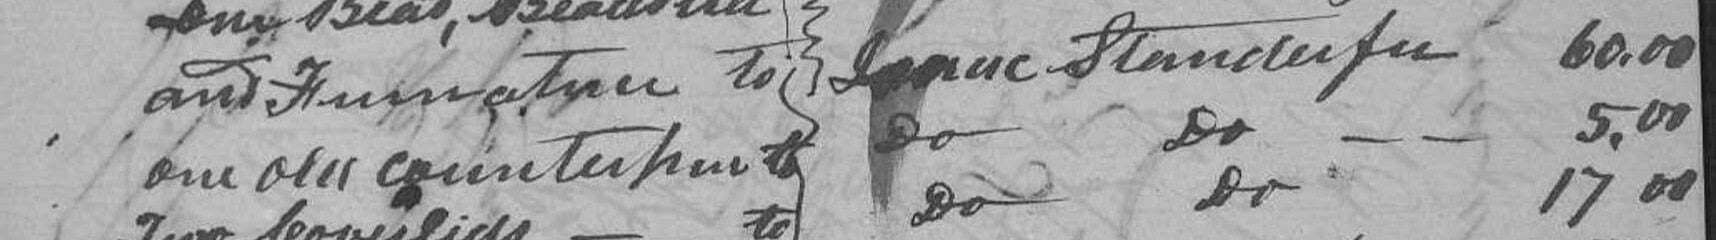 one Bead, Beadsted
and Furnature to Isaac Standefer 60.00
one old counterpin to Do Do — — 5.00
Two Coverlids — to Do Do 17 00